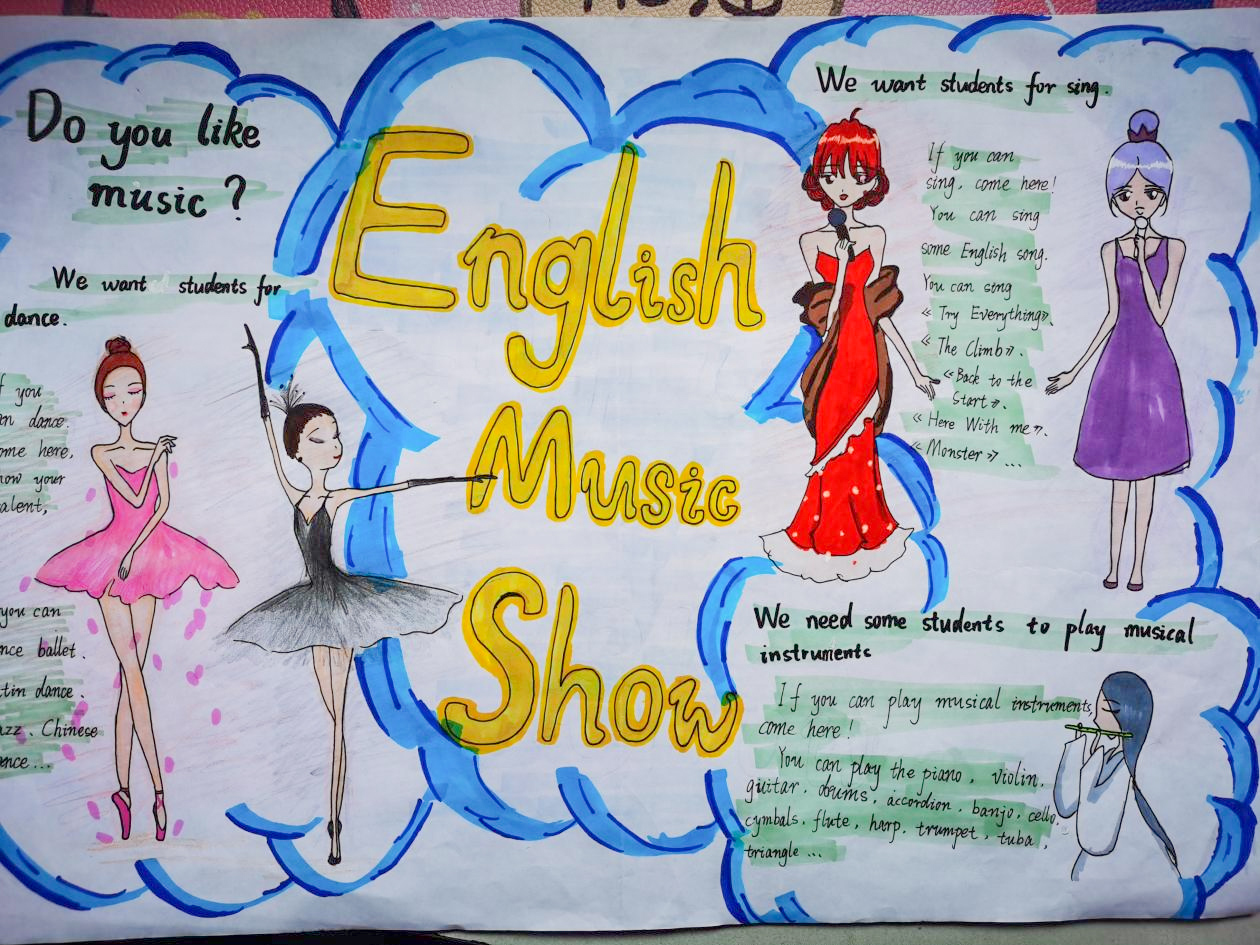 Do you like
music ?
We want students for
dance.
f you
an dance.
ome here,
how your
alent,
you can
nce ballet.
tin dance.
azz、Chinese
ance...
English
Music
Show
We want students for sing.
If you can
sing. come here!
You can sing
some English song.
You can sing
《Try Everything》.
《The Climb》.
《Back to the
Start》.
《Here With me》.
《Monster》...
We need some students to play musical
instruments
If you can play musical instruments,
come here!
You can play the piano, violin,
guitar, drums, accordion, banjo, cello,
cymbals, flute, harp, trumpet, tuba,
triangle ...